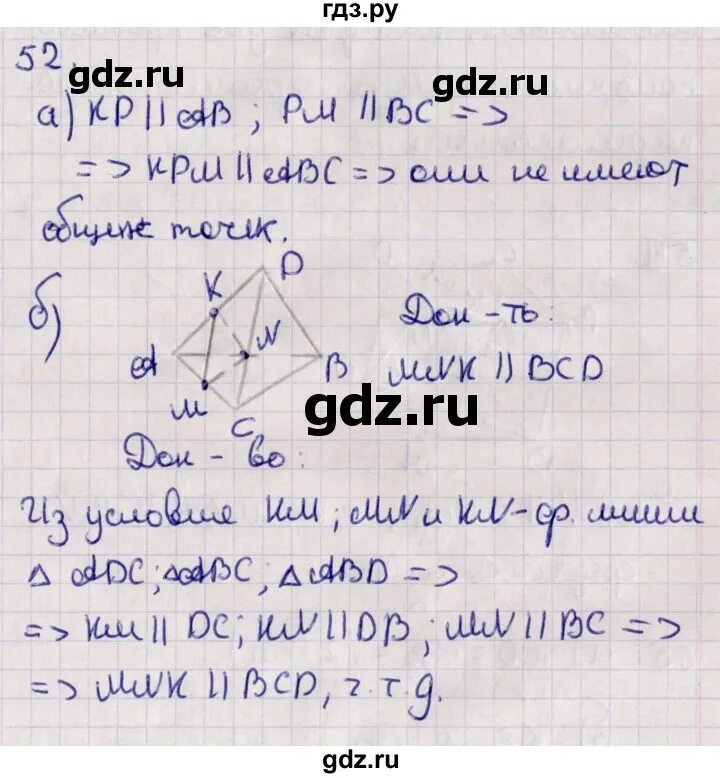 гдз.ру
52.
gdz.ru
gdz.ru
а) KP || AB ; PM || BC =>
=> KPM || ABC => они не имеют
общих точек.
б)
D
K
N
A
B
M
C
Док-ть:
MNK || BCD
gdz.ru
Док-во:
Из условие KM ; MN и KN - ср. линии
△ ADC; △ABC; △ABD =>
=> KM || DC; KN || DB ; MN || BC =>
=> MNK || BCD, ч.т.д.
gdz.ru